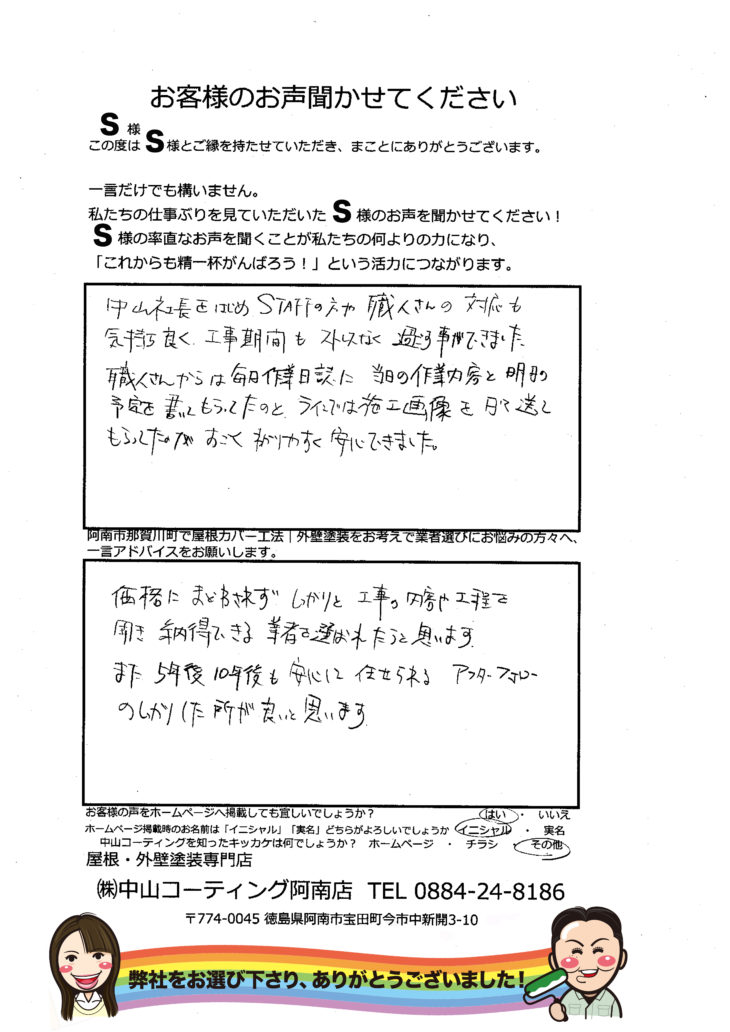 お客様のお声聞かせてください
S 様
この度は S 様とご縁を持たせていただき、まことにありがとうございます。
一言だけでも構いません。
私たちの仕事ぶりを見ていただいた S 様のお声を聞かせてください！
S 様の率直なお声を聞くことが私たちの何よりの力になり、
「これからも精一杯がんばろう！」という活力につながります。
中山社長をはじめ STAFFの方や 職人さんの 対応も
気持ち良く、工事期間も ストレスなく 過ごす事ができました
職人さんからは 毎日作業日誌に 当日の作業内容と 明日の
予定を 書いてもらってたのと、ラインでは施工画像を 日々送って
もらってたのが すごく わかりやすく 安心できました。
阿南市那賀川町で屋根カバー工法｜外壁塗装をお考えで業者選びにお悩みの方々へ、
一言アドバイスをお願いします。
価格に まどわされず しっかりと 工事の 内容や工程を
聞き 納得できる 業者を選ばれたらと思います
また 5年後 10年後も 安心して 任せられる アフターフォロー
のしっかりした所が良いと思います
お客様の声をホームページへ掲載しても宜しいでしょうか？ はい ・ いいえ
ホームページ掲載時のお名前は「イニシャル」「実名」どちらがよろしいでしょうか イニシャル ・ 実名
中山コーティングを知ったキッカケは何でしょうか？ ホームページ ・ チラシ ・ その他
屋根・外壁塗装専門店
㈱中山コーティング阿南店 TEL 0884-24-8186
〒774-0045 徳島県阿南市宝田町今市中新開3-10
弊社をお選び下さり、ありがとうございました！